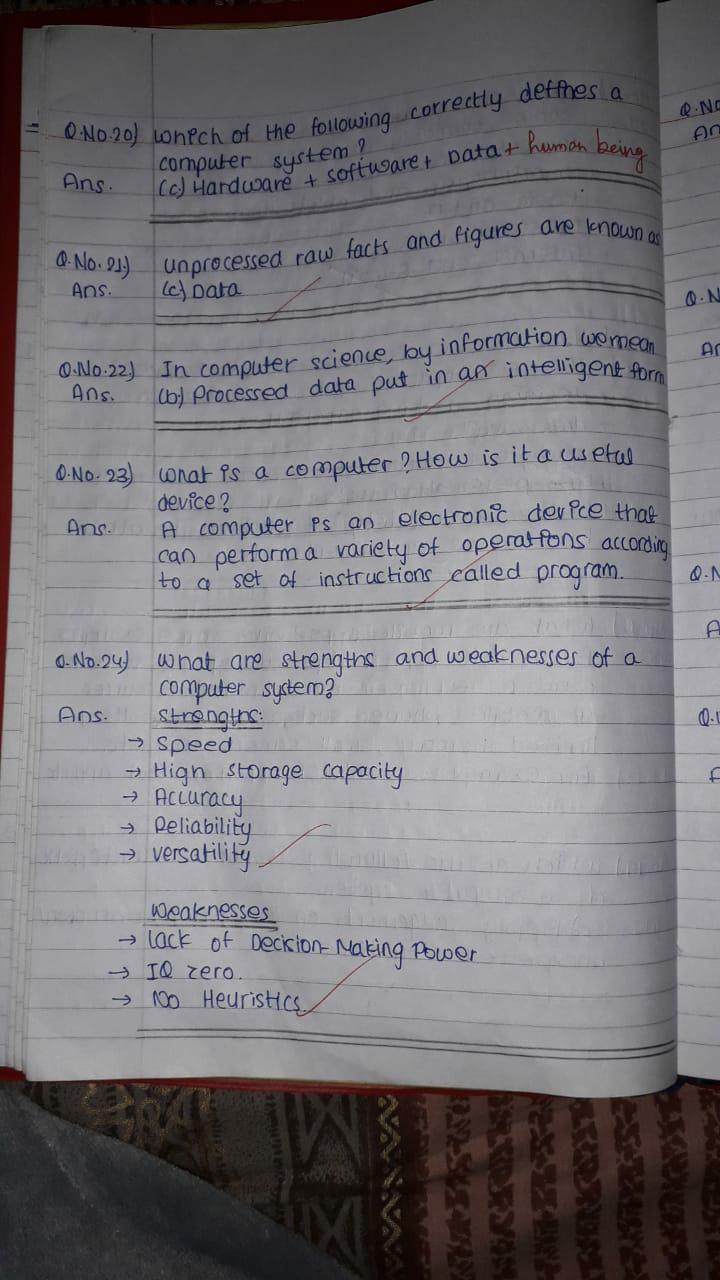 Q.No.20) Which of the following correctly defines a
computer system?
Ans. (c) Hardware + software + Data + human being
Q.No.21) unprocessed raw facts and figures are known as
Ans. (c) Data
Q.No.22) In computer science, by information we mean
Ans. (b) Processed data put in an intelligent form
Q.No.23) What is a computer? How is it a useful
device?
Ans. A computer is an electronic device that
can perform a variety of operations according
to a set of instructions called program.
Q.No.24) What are strengths and weaknesses of a
computer system?
Ans. Strengths:
→ Speed
→ High storage capacity
→ Accuracy
→ Reliability
→ versatility
Weaknesses
→ lack of Decision-Making Power
→ IQ zero.
→ No Heuristics.